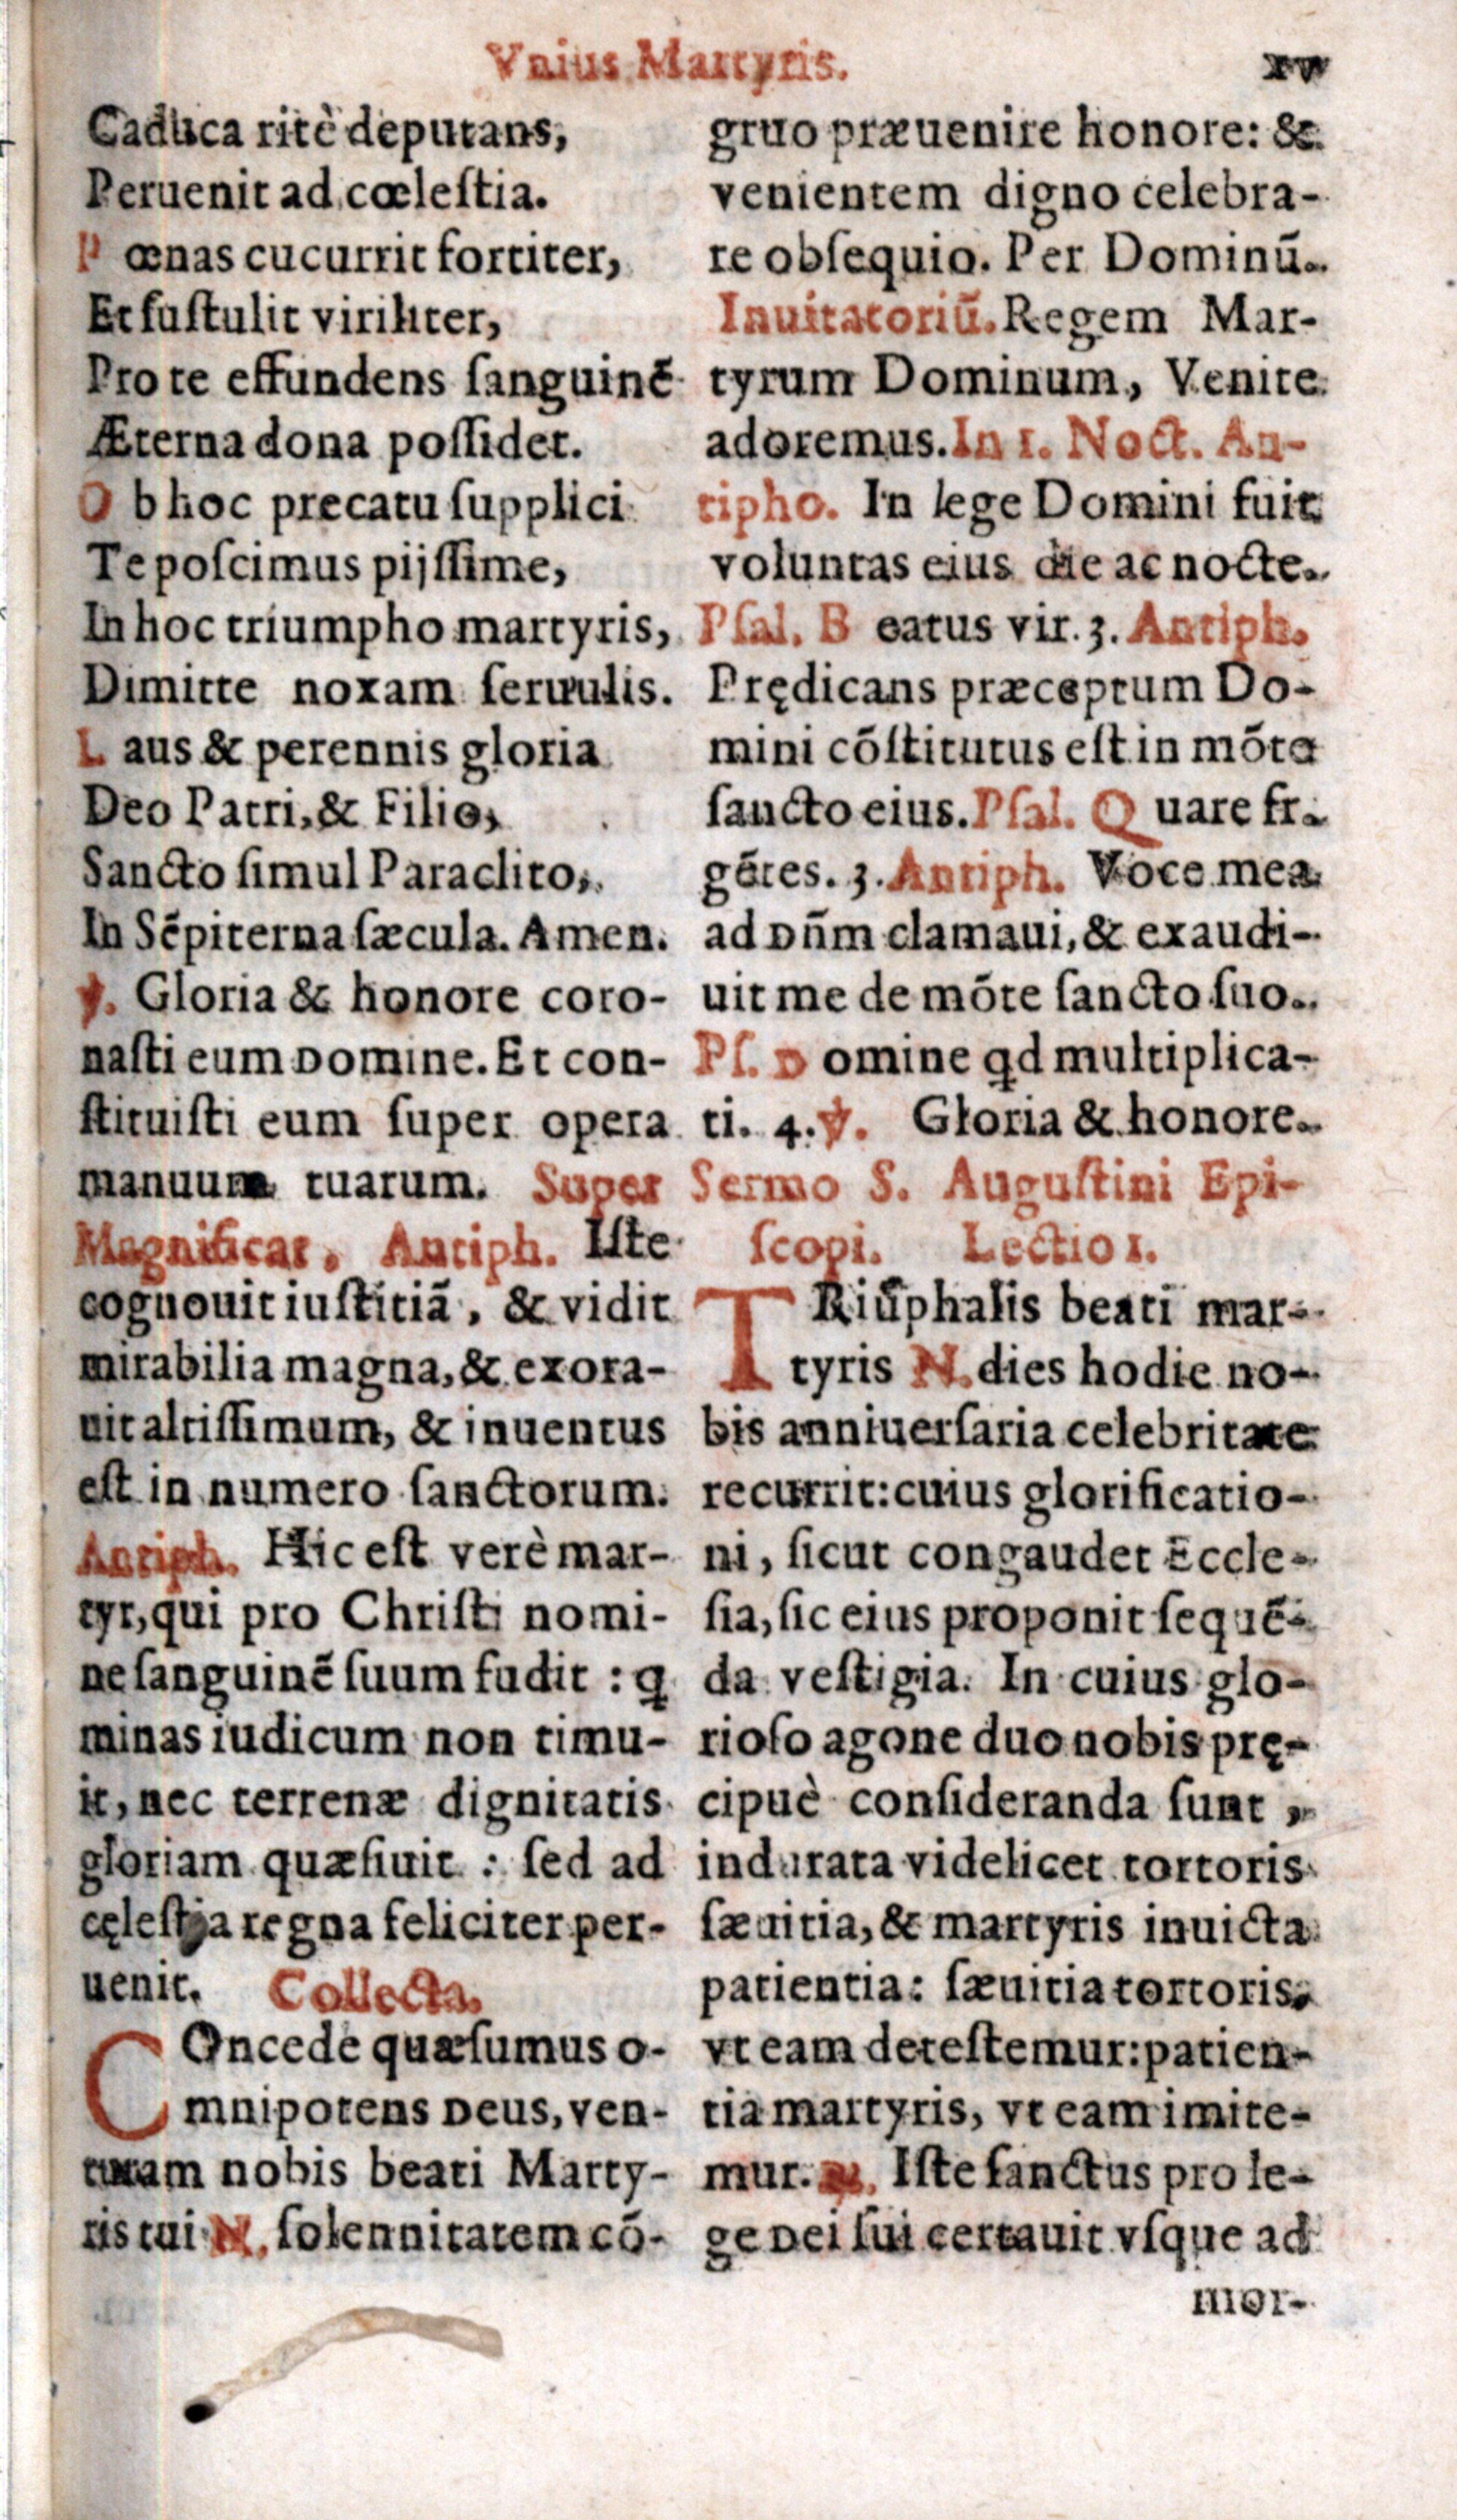 Vnius Martyris.
xv
Caduca ritè deputans,
Peruenit ad cœleſtia.
P œnas cucurrit fortiter,
Et ſuſtulit viriliter,
Pro te effundens ſanguinẽ
Æterna dona poſſidet.
O b hoc precatu ſupplici
Te poſcimus pijſſime,
In hoc triumpho martyris,
Dimitte noxam ſeruulis.
L aus & perennis gloria
Deo Patri, & Filio,
Sancto ſimul Paraclito,
In Sẽpiterna ſæcula. Amen.
℣. Gloria & honore coro-
naſti eum Domine. Et con-
ſtituiſti eum ſuper opera
manuum tuarum. Super
Magnificat, Antiph. Iſte
cognouit iuſtitiã, & vidit
mirabilia magna, & exora-
uit altiſſimum, & inuentus
eſt in numero ſanctorum.
Antiph. Hic eſt verè mar-
tyr, qui pro Chriſti nomi-
ne ſanguinẽ ſuum fudit : ꝗ
minas iudicum non timu-
it, nec terrenæ dignitatis
gloriam quæſiuit : ſed ad
cęleſtia regna feliciter per-
uenit. Collecta.
COncede quæſumus o-
mnipotens Deus, ven-
turam nobis beati Marty-
ris tui N. ſolennitatem cõ-
gruo præuenire honore: &
venientem digno celebra-
re obſequio. Per Dominũ.
Inuitatoriũ. Regem Mar-
tyrum Dominum, Venite
adoremus. In 1. Noct. An-
tipho. In lege Domini fuit
voluntas eius die ac nocte.
Pſal. B eatus vir. 3. Antiph.
Prędicans præceptum Do-
mini cõſtitutus eſt in mõte
ſancto eius. Pſal. Q uare fr.
gẽtes. 3. Antiph. Voce mea
ad Dñm clamaui, & exaudi-
uit me de mõte ſancto ſuo.
Pſ. D omine ꝗd multiplica-
ti. 4. ℣. Gloria & honore.
Sermo S. Auguſtini Epi-
ſcopi. Lectio 1.
TRiũphalis beati mar-
tyris N. dies hodie no-
bis anniuerſaria celebritate
recurrit: cuius glorificatio-
ni, ſicut congaudet Eccle-
ſia, ſic eius proponit ſequẽ-
da veſtigia. In cuius glo-
rioſo agone duo nobis prę-
cipuè conſideranda ſunt,
indurata videlicet tortoris
ſæuitia, & martyris inuicta
patientia: ſæuitia tortoris,
vt eam deteſtemur: patien-
tia martyris, vt eam imite-
mur. ℟. Iſte ſanctus pro le-
ge Dei ſui certauit vſque ad
mor-